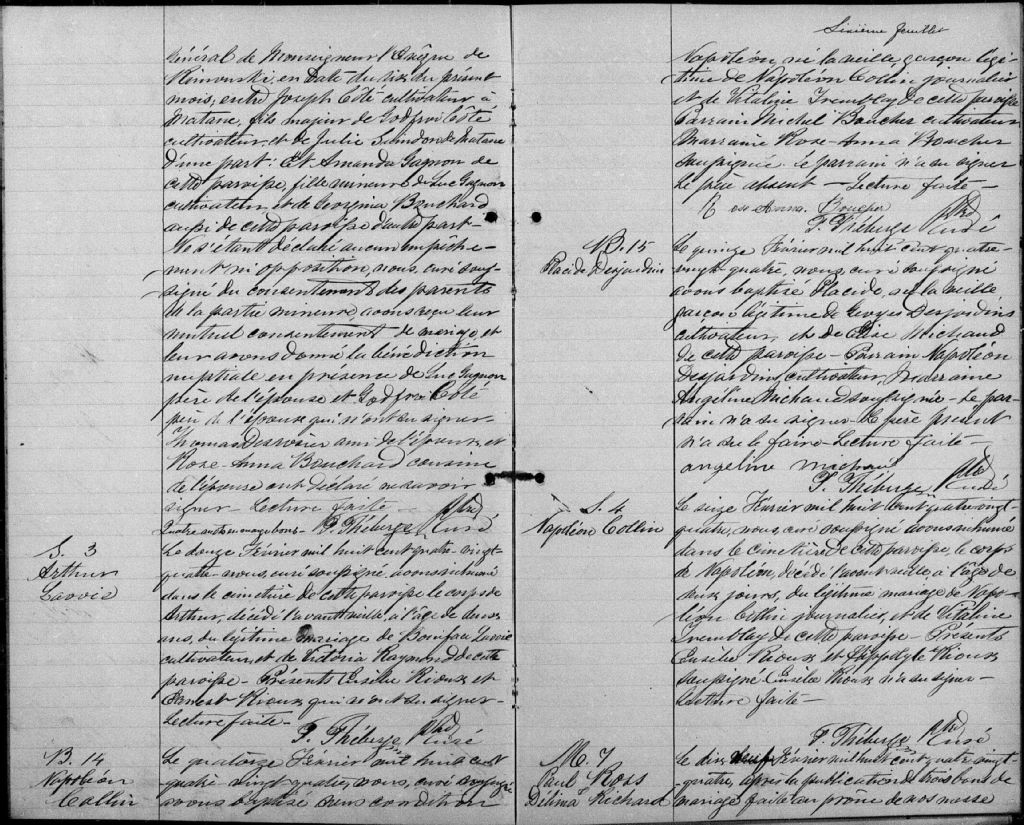 Général de Monseigneur l'Evêque de
Rimouski, en date du six du présent
mois, entre Joseph Côté cultivateur à
Matane, fils majeur de Godfroi Côté
cultivateur, et de Julie Sindon de Matane
d'une part; Et Amanda Gagnon de
cette paroisse, fille mineure de Luc Gagnon
cultivateur et de Georgina Bouchard
aussi de cette paroisse d'autre part—
Ne s'étant déclaré aucun empêche-
ment ni opposition, nous, curé sous-
signé du consentement des parents
de la partie mineure, avons reçu leur
mutuel consentement de mariage, et
leur avons donné la bénédiction
nuptiale en présence de Luc Gagnon
père de l'épouse et Godfroi Côté
père de l'époux qui n'ont su signer
Thomas Desrosier ami de l'époux, et
Rose-Anna Bouchard cousine
de l'épouse ont déclaré ne savoir
signer— Lecture faite—
F. Théberge Ptre Curé
S. 3
Arthur
Lavoie
Le douze Février mil huit cent quatre-vingt
quatre, nous, curé soussigné, avons inhumé
dans le cimetière de cette paroisse le corps de
Arthur, décédé l'avant veille, à l'âge de deux
ans, du légitime mariage de Lavoie
cultivateur, et de Victoria Raymond de cette
paroisse— Présents Eusèbe Rioux et
Ernest Rioux qui n'ont su signer—
Lecture faite—
F. Théberge Ptre Curé
B. 14
Napoléon
Collin
Le quatorze Février mil huit cent
quatre vingt quatre, nous, curé soussigné
avons baptisé sous condition
Sixième feuillet
Napoléon, né la veille, garçon légi-
time de Napoléon Collin journalier
et de Vitaline Tremblay de cette paroisse
Parrain Michel Boucher cultivateur
Marraine Rose-Anna Boucher
soussignée le parrain n'a su signer
Le père absent— Lecture faite—
Rose Anna. Boucher
F. Théberge Ptre Curé
B. 15
Placide Desjardins
Le quinze Février mil huit cent quatre-
vingt-quatre, nous, curé soussigné
avons baptisé Placide, né la veille
garçon légitime de Georges Desjardins
cultivateur, et de Elise Michaud
de cette paroisse— Parrain Napoléon
Desjardins, cultivateur, Marraine
Angéline Michaud soussignée— Le par-
rain n'a su signer Le père présent
n'a su le faire— Lecture faite—
angeline michaud
F. Théberge Ptre Curé
S. 4
Napoléon Collin
Le seize Février mil huit cent quatre vingt-
quatre, nous, curé soussigné avons inhumé
dans le cimetière de cette paroisse, le corps
de Napoléon, décédé l'avant veille, à l'âge de
deux jours, du légitime mariage de Napo-
léon Collin journalier, et de Vitaline
Tremblay de cette paroisse— Présents
Eusèbe Rioux et Hyppolyte Rioux
soussigné Eusèbe Rioux n'a su signer—
Lecture faite—
F. Théberge Ptre Curé
M. 7
Paul Rois
Délima Richard
Le dix Février mil huit cent quatre vingt
quatre, après la publication de trois bans de
mariage faite au prône de nos messe